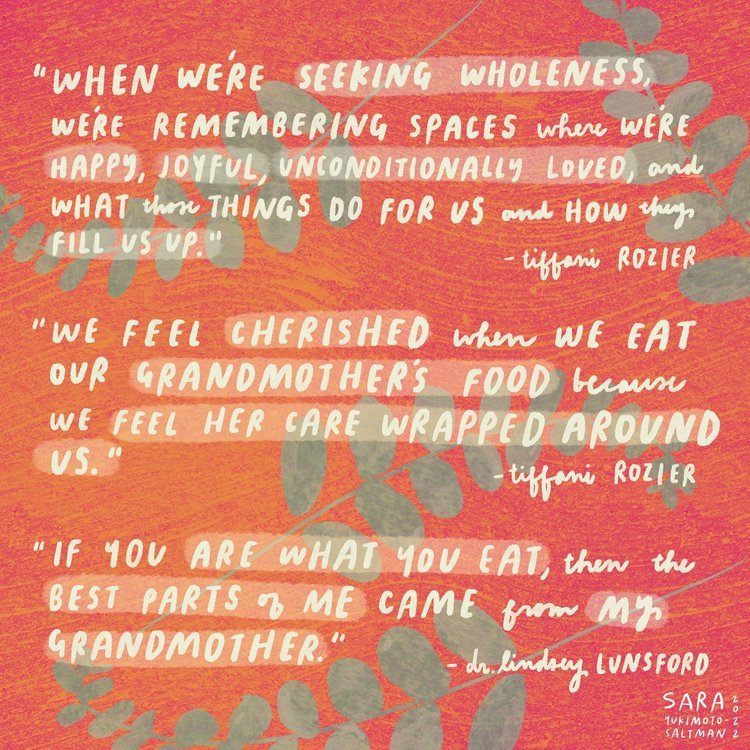 "WHEN WE'RE SEEKING WHOLENESS,
WE'RE REMEMBERING SPACES where WE'RE
HAPPY, JOYFUL, UNCONDITIONALLY LOVED, and
WHAT those THINGS DO FOR US and HOW they
FILL US UP."
- tiffani ROZIER
"WE FEEL CHERISHED when WE EAT
OUR GRANDMOTHER'S FOOD because
WE FEEL HER CARE WRAPPED AROUND
US."
- tiffani ROZIER
"IF YOU ARE WHAT YOU EAT, then the
BEST PARTS of ME CAME from MY
GRANDMOTHER."
- dr. lindsey LUNSFORD
SARA
YUKIMOTO-
SALTMAN
2022